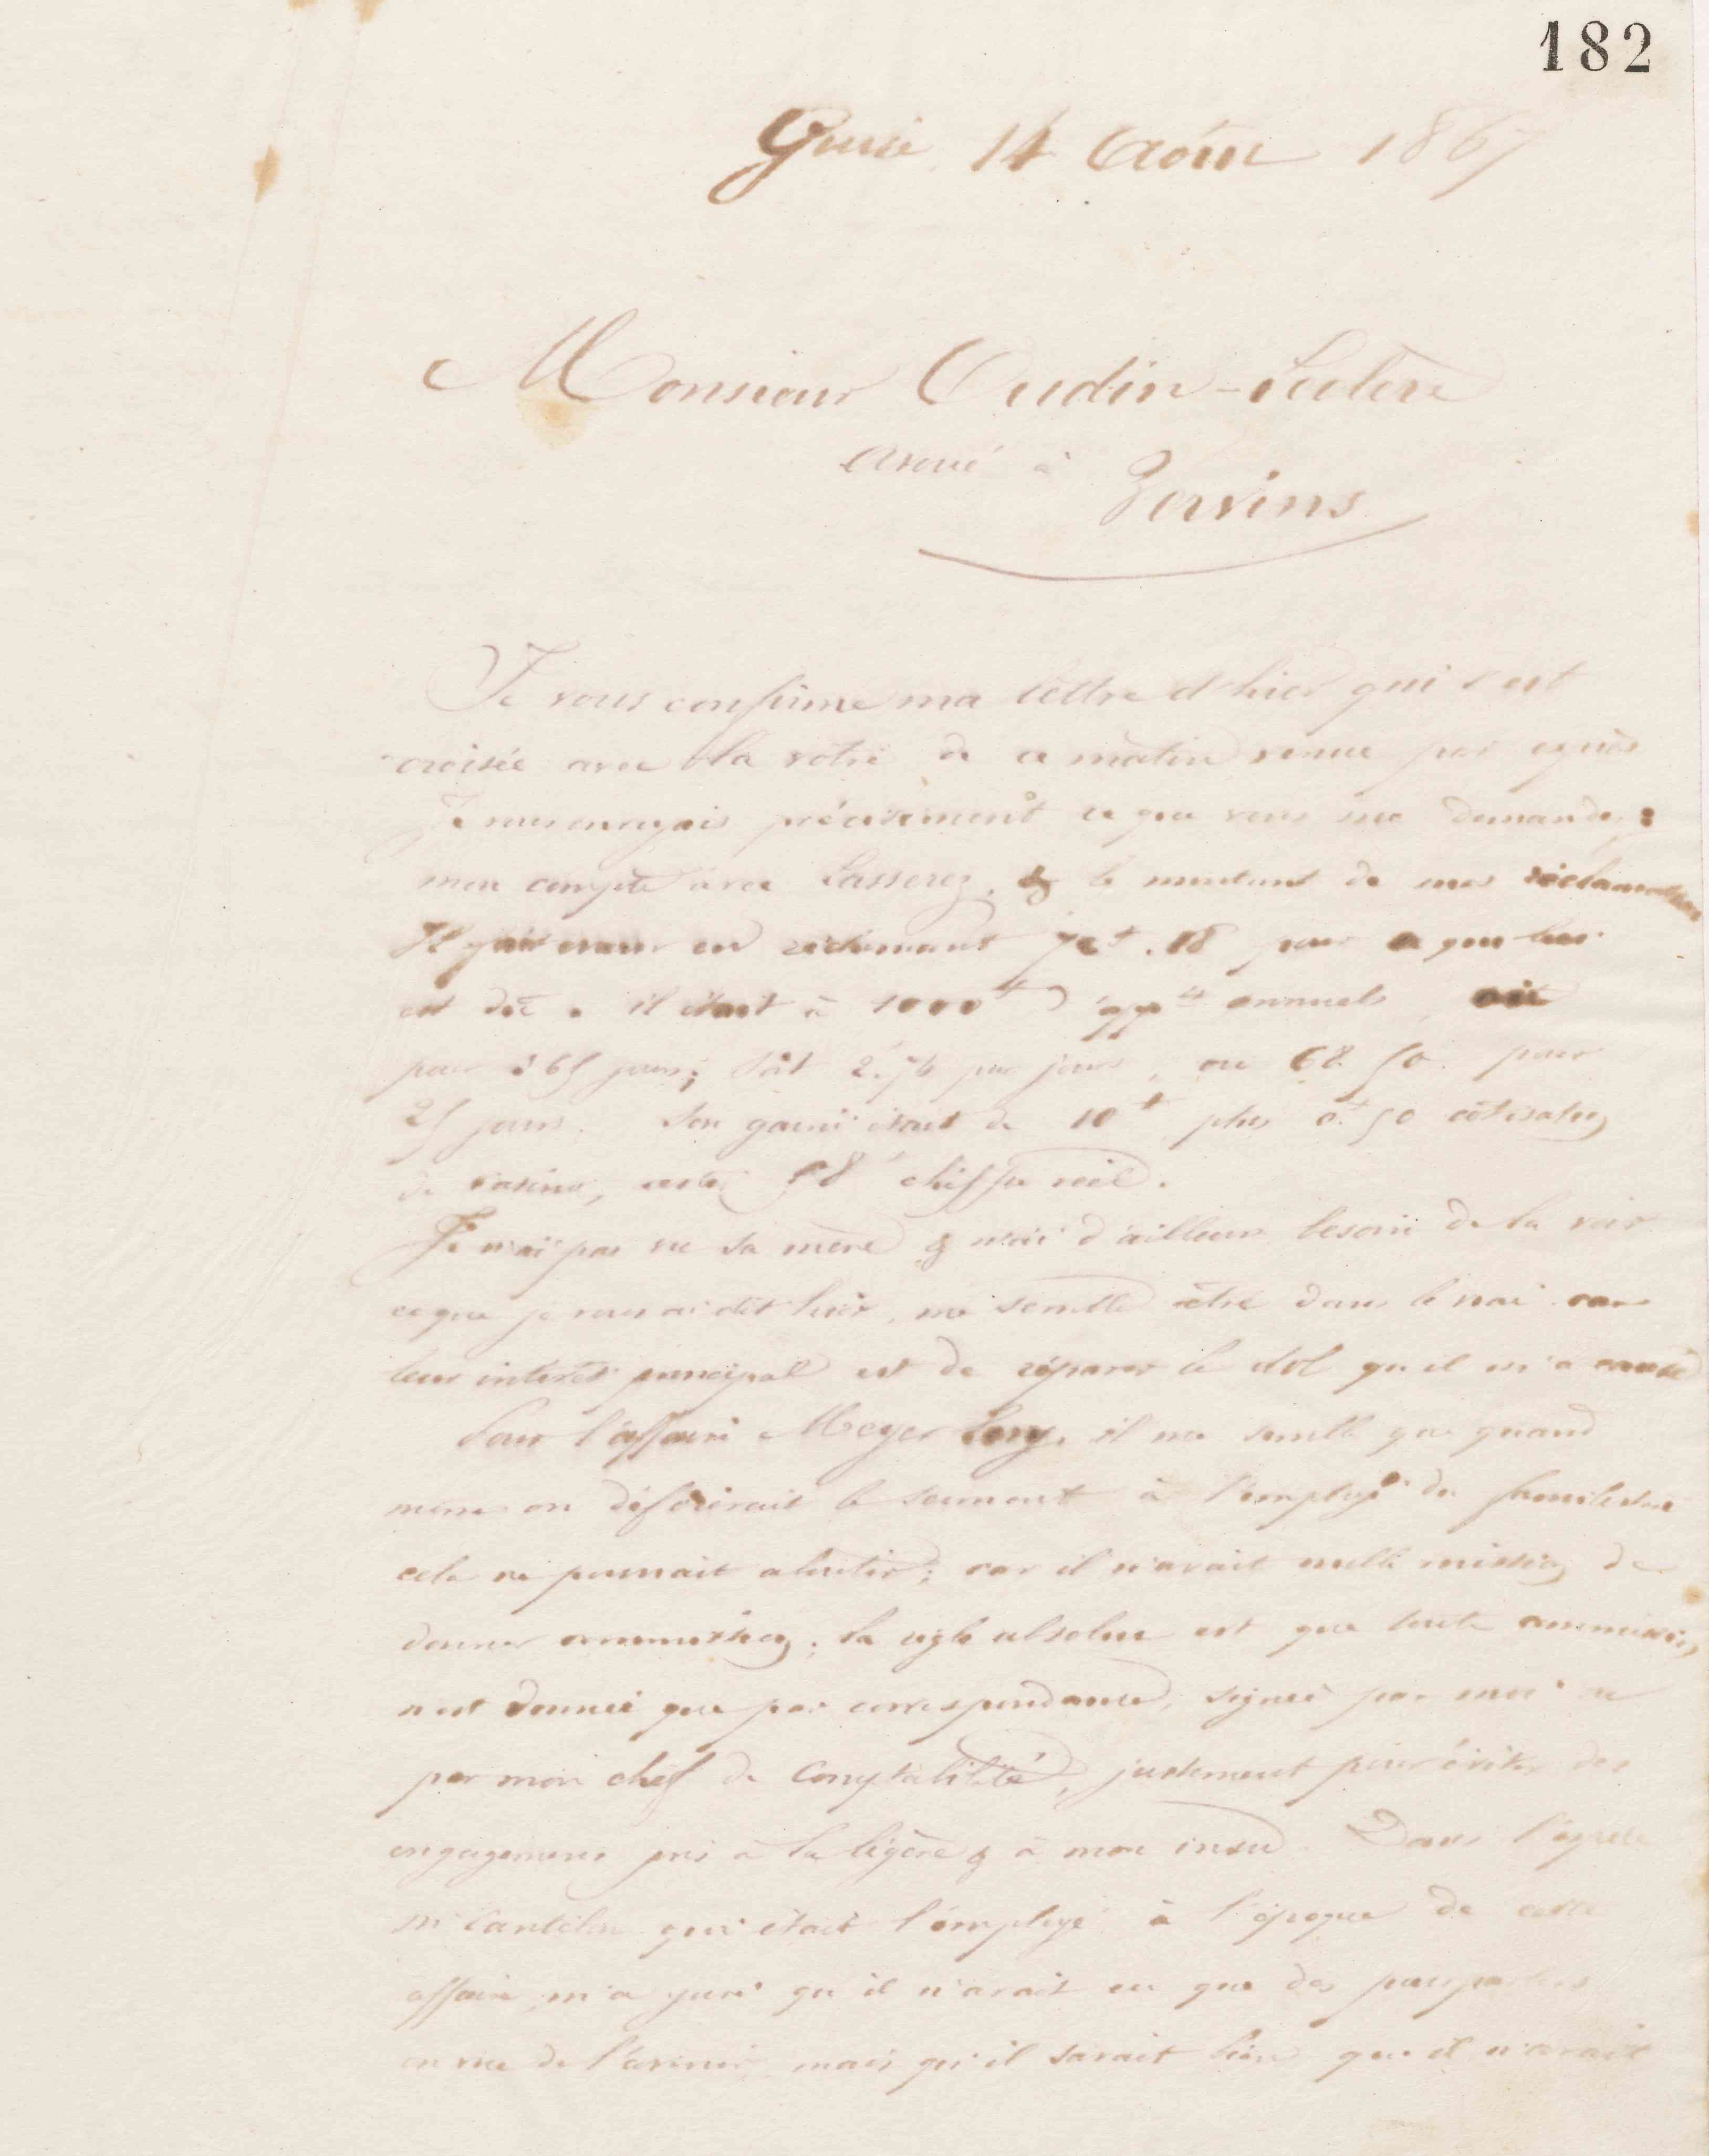 182
Guise 14 Août 1867
Monsieur Oudin-Leclère
avoué à
Vervins
Je vous confirme ma lettre d'hier qui s'est
croisée avec la votre de ce matin venue par exprès
Je vous envoyais précisément ce que vous me demandez :
mon compte avec Lasserez, & le montant de mes réclamations
Il fait erreur en réclamant 78 pour ce que lui
est dû. il était à 1000f d'appts annuels, soit
pour 365 jours; soit 2.74 par jour, ou 68.50 pour
25 jours. Son garni était de 10f plus 0f.50 cotisation
de casino, reste 58f chiffre réel.
Je n'ai pas vu sa mère & n'ai d'ailleurs besoin de la voir
ce que je vous ai dit hier, me semble être dans le vrai car
leur intérêt principal est de réparer le dol qu'il m'a causé
Pour l'affaire Meyer Levy, il me semble que quand
même on déférerait le serment à l'employé du familistère
cela ne pourrait aboutir; car il n'avait nulle mission de
donner commission; la règle absolue est que toute commission
n'est donnée que par correspondance, signée par moi ou
par mon chef de Comptabilité, justement pour éviter des
engagements pris à la légère & à mon insu. Dans l'espèce
M. qui était l'employé à l'époque de cette
affaire, m'a juré qu'il n'avait eu que des pourparlers
en vue de l'avenir, mais qu'il savait bien que il n'avait